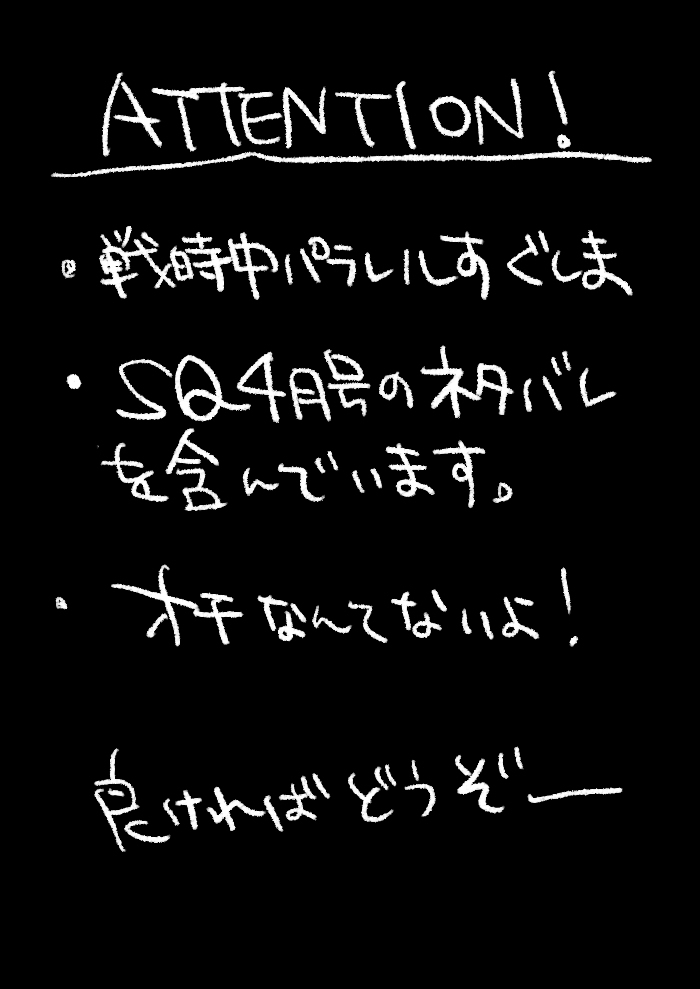 ATTENTION!
・戦時中パラレルすぐしま
・SQ4月号のネタバレ
を含んでいます。
・オチなんてないよ!
良ければどうぞー